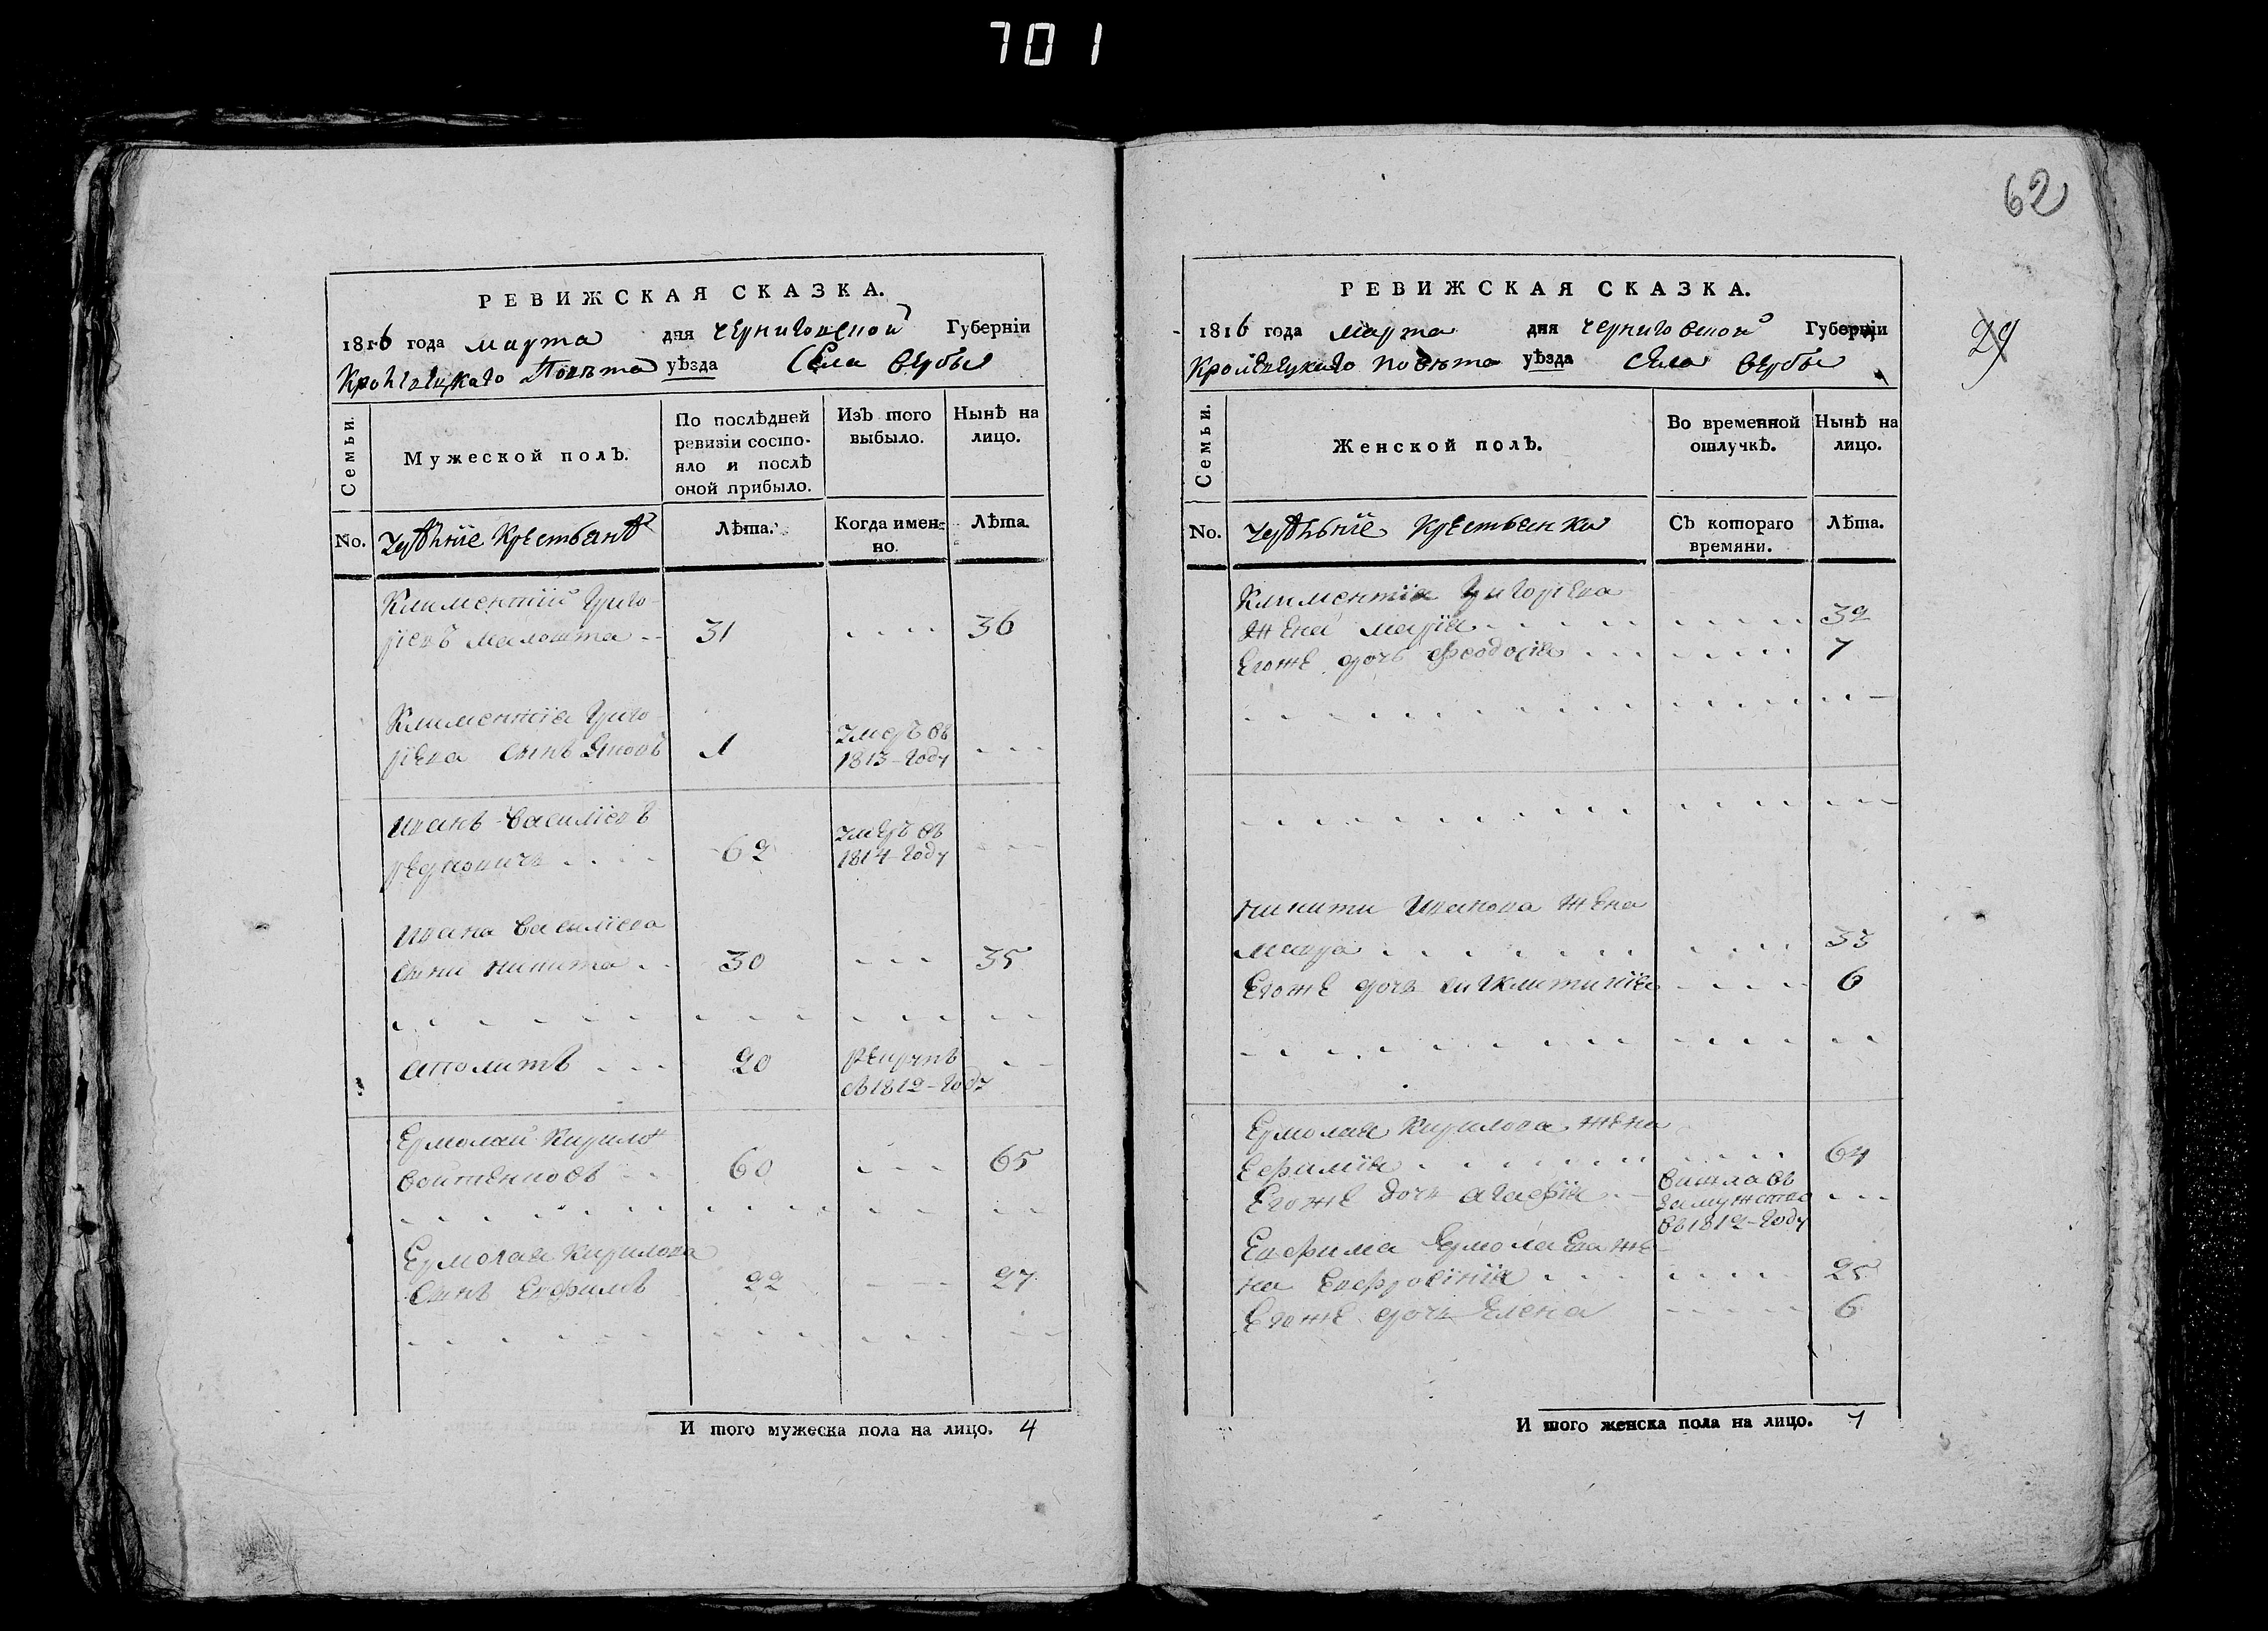 701
РЕВИЖСКАЯ СКАЗКА.
1816 года марта дня черниговской Губерніи
Кролевецкаго Повѣта уѣзда Села вербы
Семьи.
Мужеской полЪ.
По послѣдней
ревизіи состо-
яло и послѣ
оной прибыло.
ИзЪ того
выбыло.
Нынѣ на
лицо.
No.
Крестьянѣ
Лѣта.
Когда имен-
но.
Лѣта.
Климентій Григо-
ріевъ малошта 31 36
Климентія Григо-
ріева сынъ Яковъ 1 умеръ въ
1813-году
Иванъ василіевъ
62 умеръ въ
1814-году
Ивана василіева
сыни никита 30 35
аполитъ 20 рекрутъ
въ 1812-году
Ермолай Кирилов
войтенковъ 60 65
Ермолая Кирилова
сынъ Евфимъ 22 27
И того мужеска пола на лицо. 4
62
29
РЕВИЖСКАЯ СКАЗКА.
1816 года марта дня черниговской Губерніи
Кролевецкаго Повѣта уѣзда Села вербы
Семьи.
Женской полЪ.
Во временной
отлучкѣ.
НынѣЪ на
лицо.
No.
Крестьянки
СЪ котораго
времяни.
Лѣта.
Климентія Григоріева
жена марія 32
Егоже дочь Феодосія 7
никити Иванова жена
мавра 33
Егоже дочь 6
Ермолая Кирилова жена
Ефимія 64
Егоже дочь агафія вишла въ
замужство
въ 1812-году
Евфима Ермолаева же-
на Евфросінія 25
Егоже дочь Елена 6
И того женска пола на лицо. 7